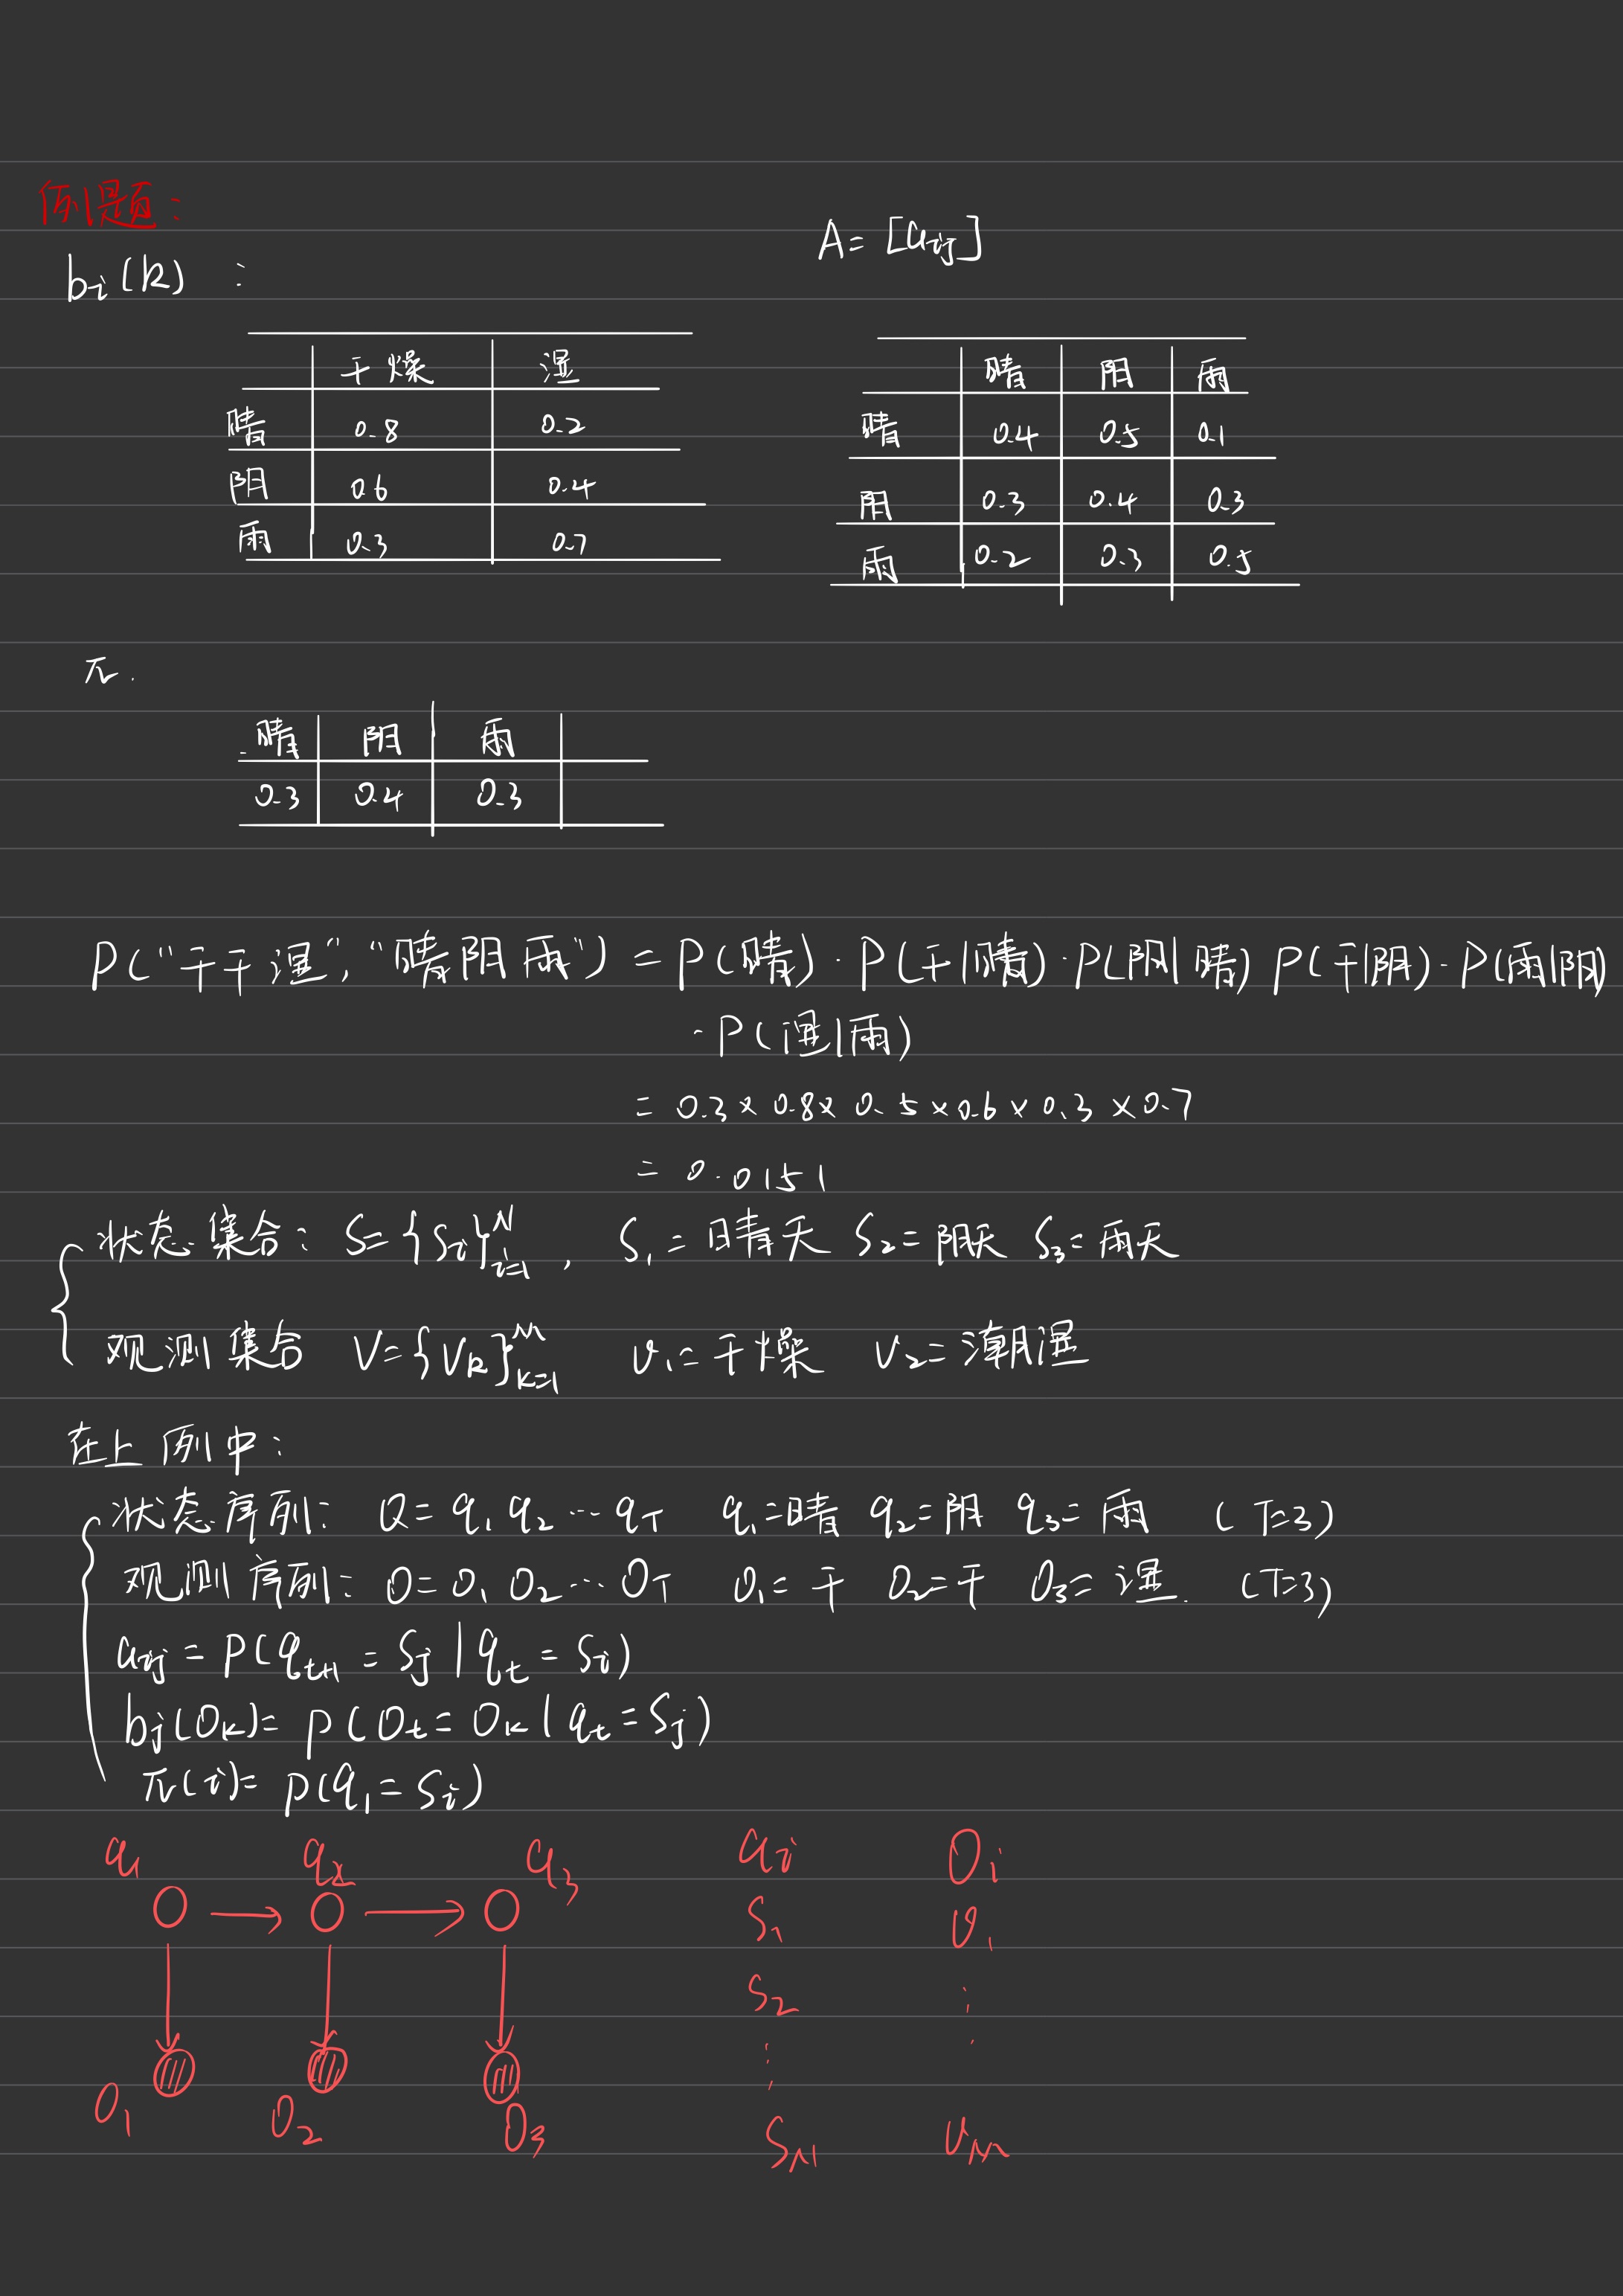 例题：
bᵢ(k) :
A = [aᵢⱼ]
干燥 湿
晴 0.8 0.2
阴 0.6 0.4
雨 0.3 0.7
晴 阴 雨
晴 0.4 0.5 0.1
阴 0.3 0.4 0.3
雨 0.2 0.3 0.5
π.
晴 阴 雨
0.3 0.4 0.3
P("干干湿", "晴阴雨") = P(晴)·P(干|晴)·P(阴|晴) P(干|阴)·P(雨|阴)
·P(湿|雨)
= 0.3 × 0.8 × 0.5 × 0.6 × 0.3 × 0.7
= 0.0151
状态集合: S = {Sᵢ}ᴺᵢ₌₁, S₁ = 晴天 S₂ = 阴天 S₃ = 雨天
观测集合 V = {Vₖ}ᴹₖ₌₁ v₁ = 干燥 v₂ = 潮湿
在上例中:
状态序列: Q = q₁q₂…q_T q₁ = 晴 q₂ = 阴 q₃ = 雨 (T=3)
观测序列: O = O₁O₂…O_T O₁ = 干 O₂ = 干 O₃ = 湿. (T=3)
aᵢⱼ = P(qₜ₊₁ = Sⱼ | qₜ = Sᵢ)
bⱼ(Oₖ) = P(Oₜ = Oₖ | qₜ = Sⱼ)
π(i) = P(q₁ = Sᵢ)
q₁ q₂ q₃ qᵢ Oᵢ
S₁ v₁
S₂ ⋮
⋮
O₁ O₂ O₃ S_N v_M